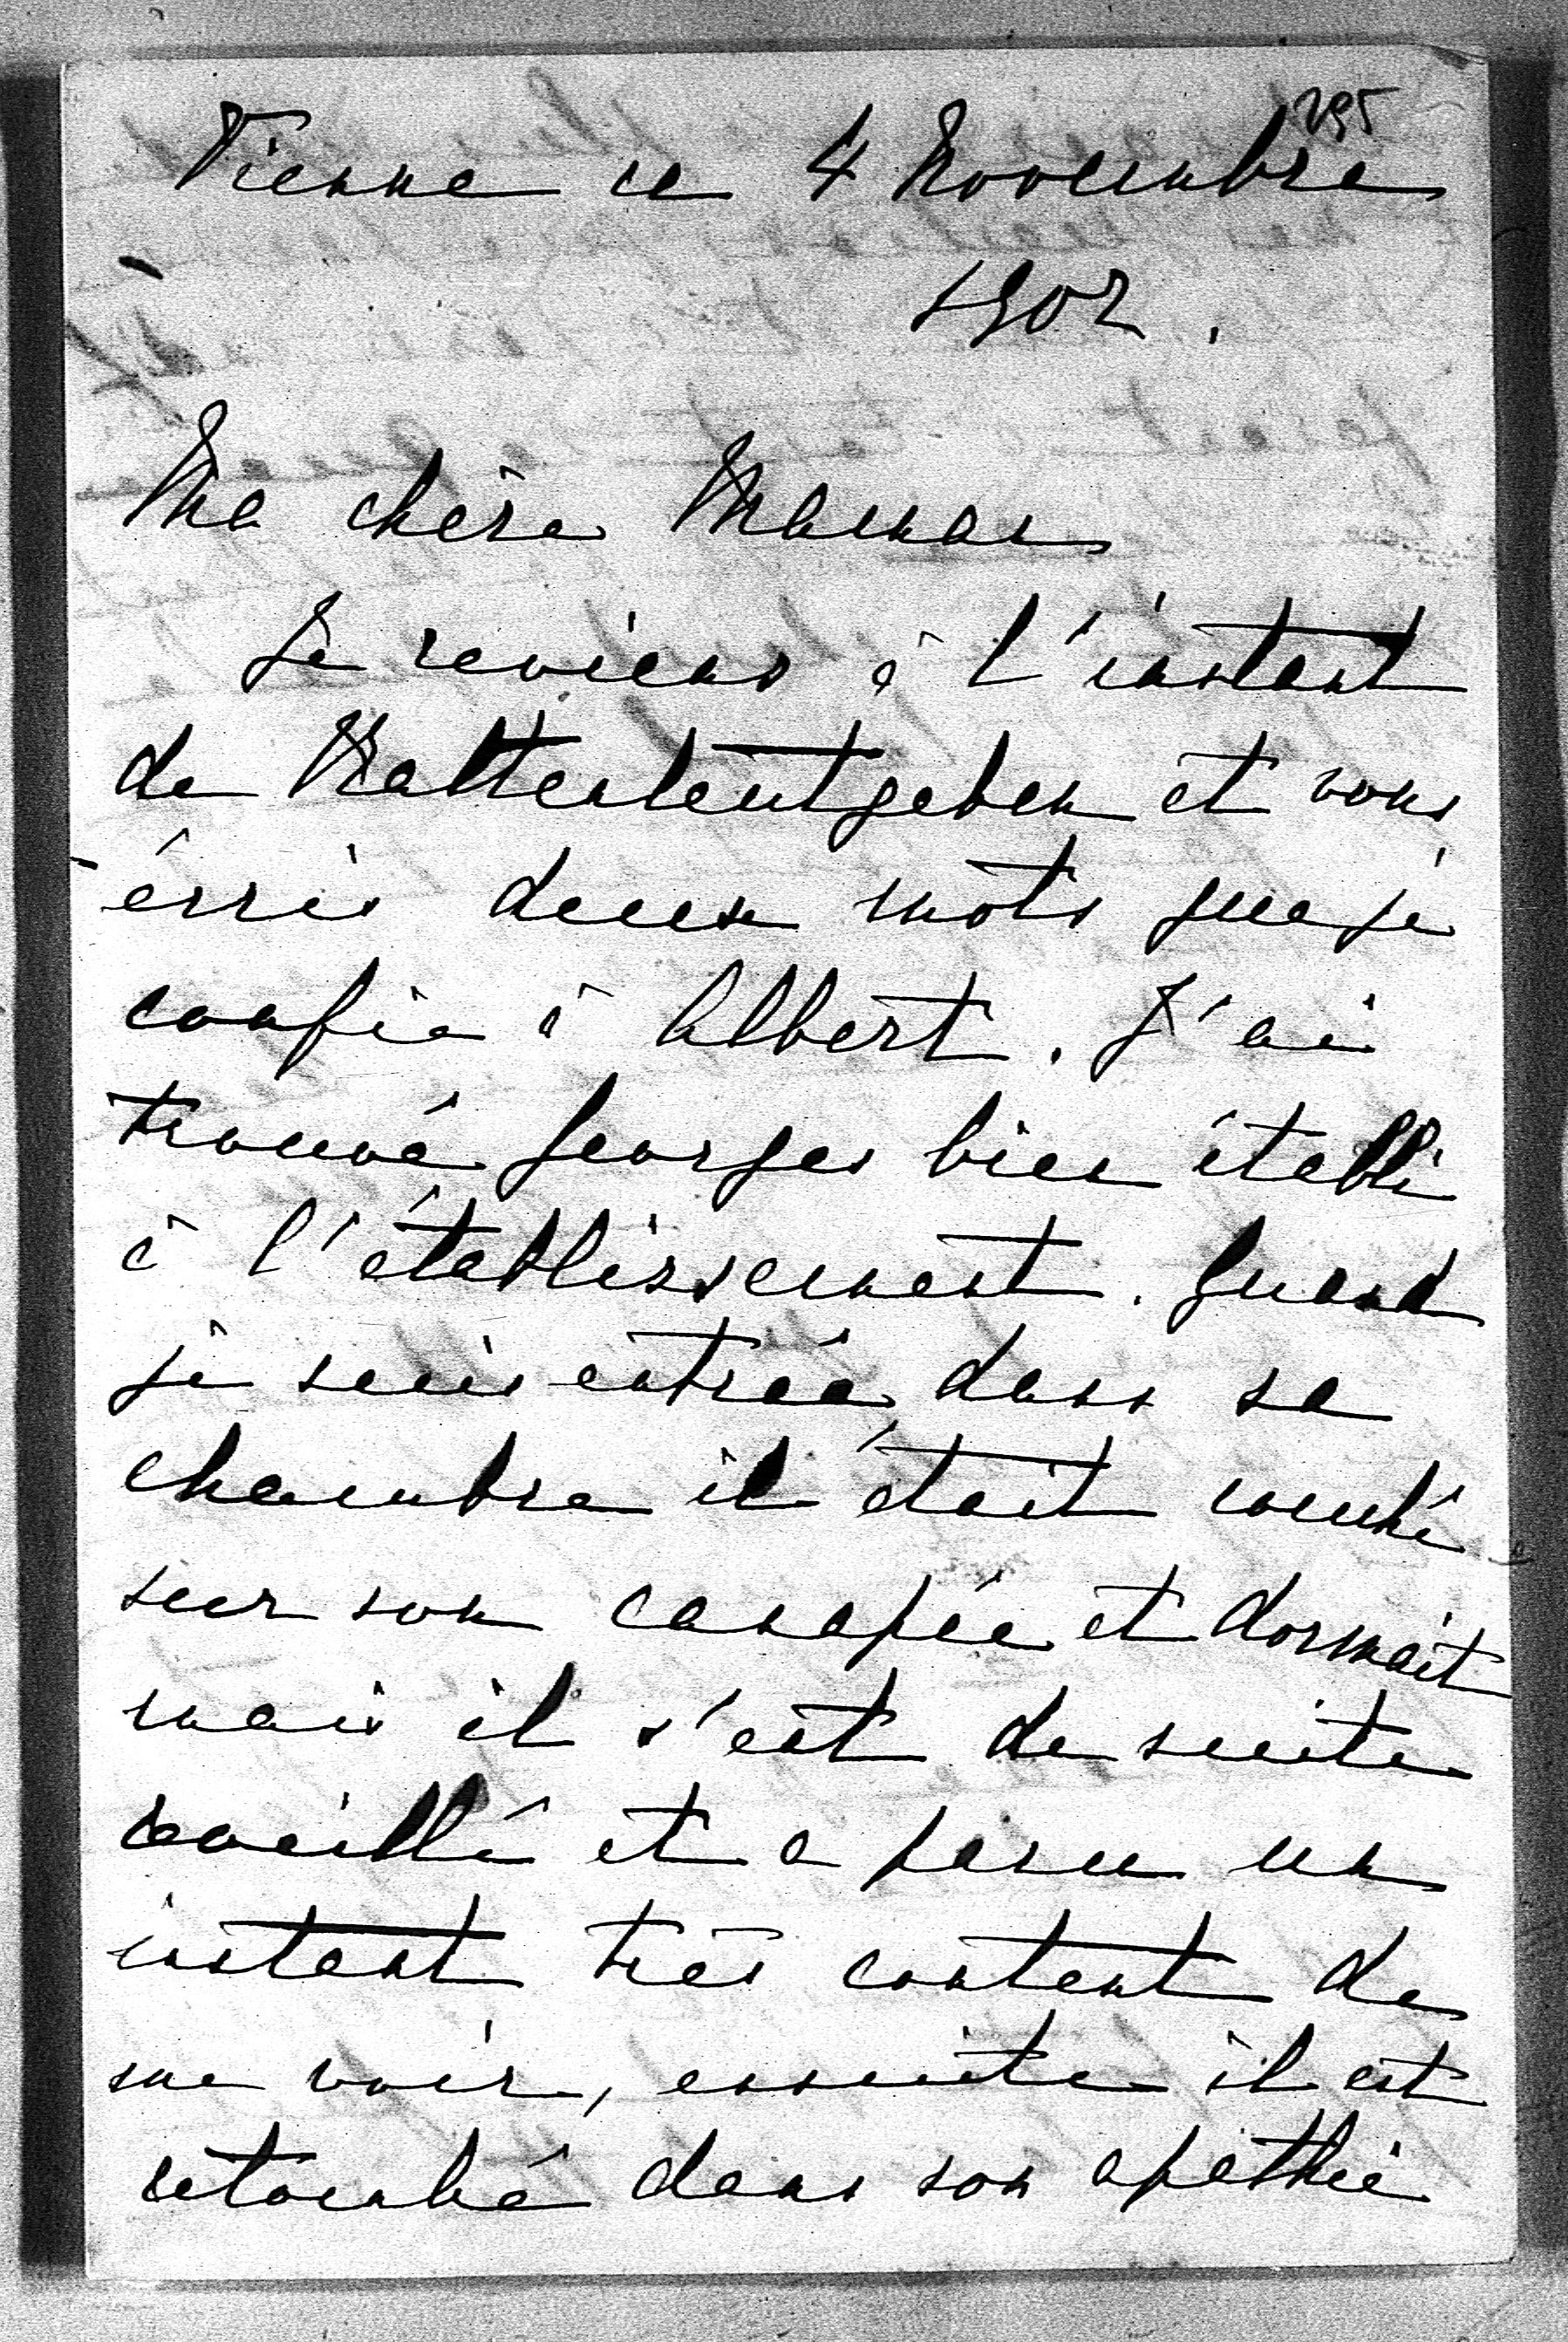 295
Vienne ce 4 Novembre
1902.
Ma chère Maman
Je reviens à l'instant
de Kaltenleutgeben et vous
écris deux mots que je
confie à Albert. J'ai
trouvé Georges bien établi
à l'établissement. Quand
je suis entrée dans sa
chambre il était couché
sur son canapée et dormait
mais il s'est de suite
reveillé et a paru un
instant très content de
me voir, ensuite il est
retombé dans son apathie